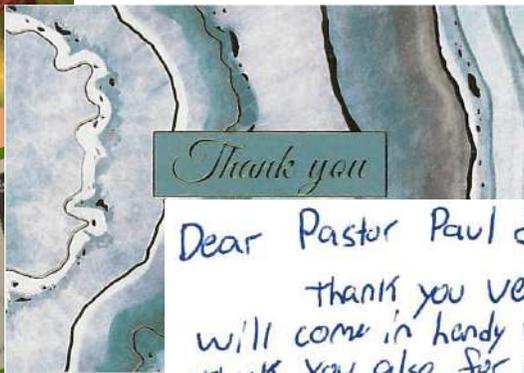 Thank you
Dear Pastor Paul
Thank you
will come in handy
thank you also for